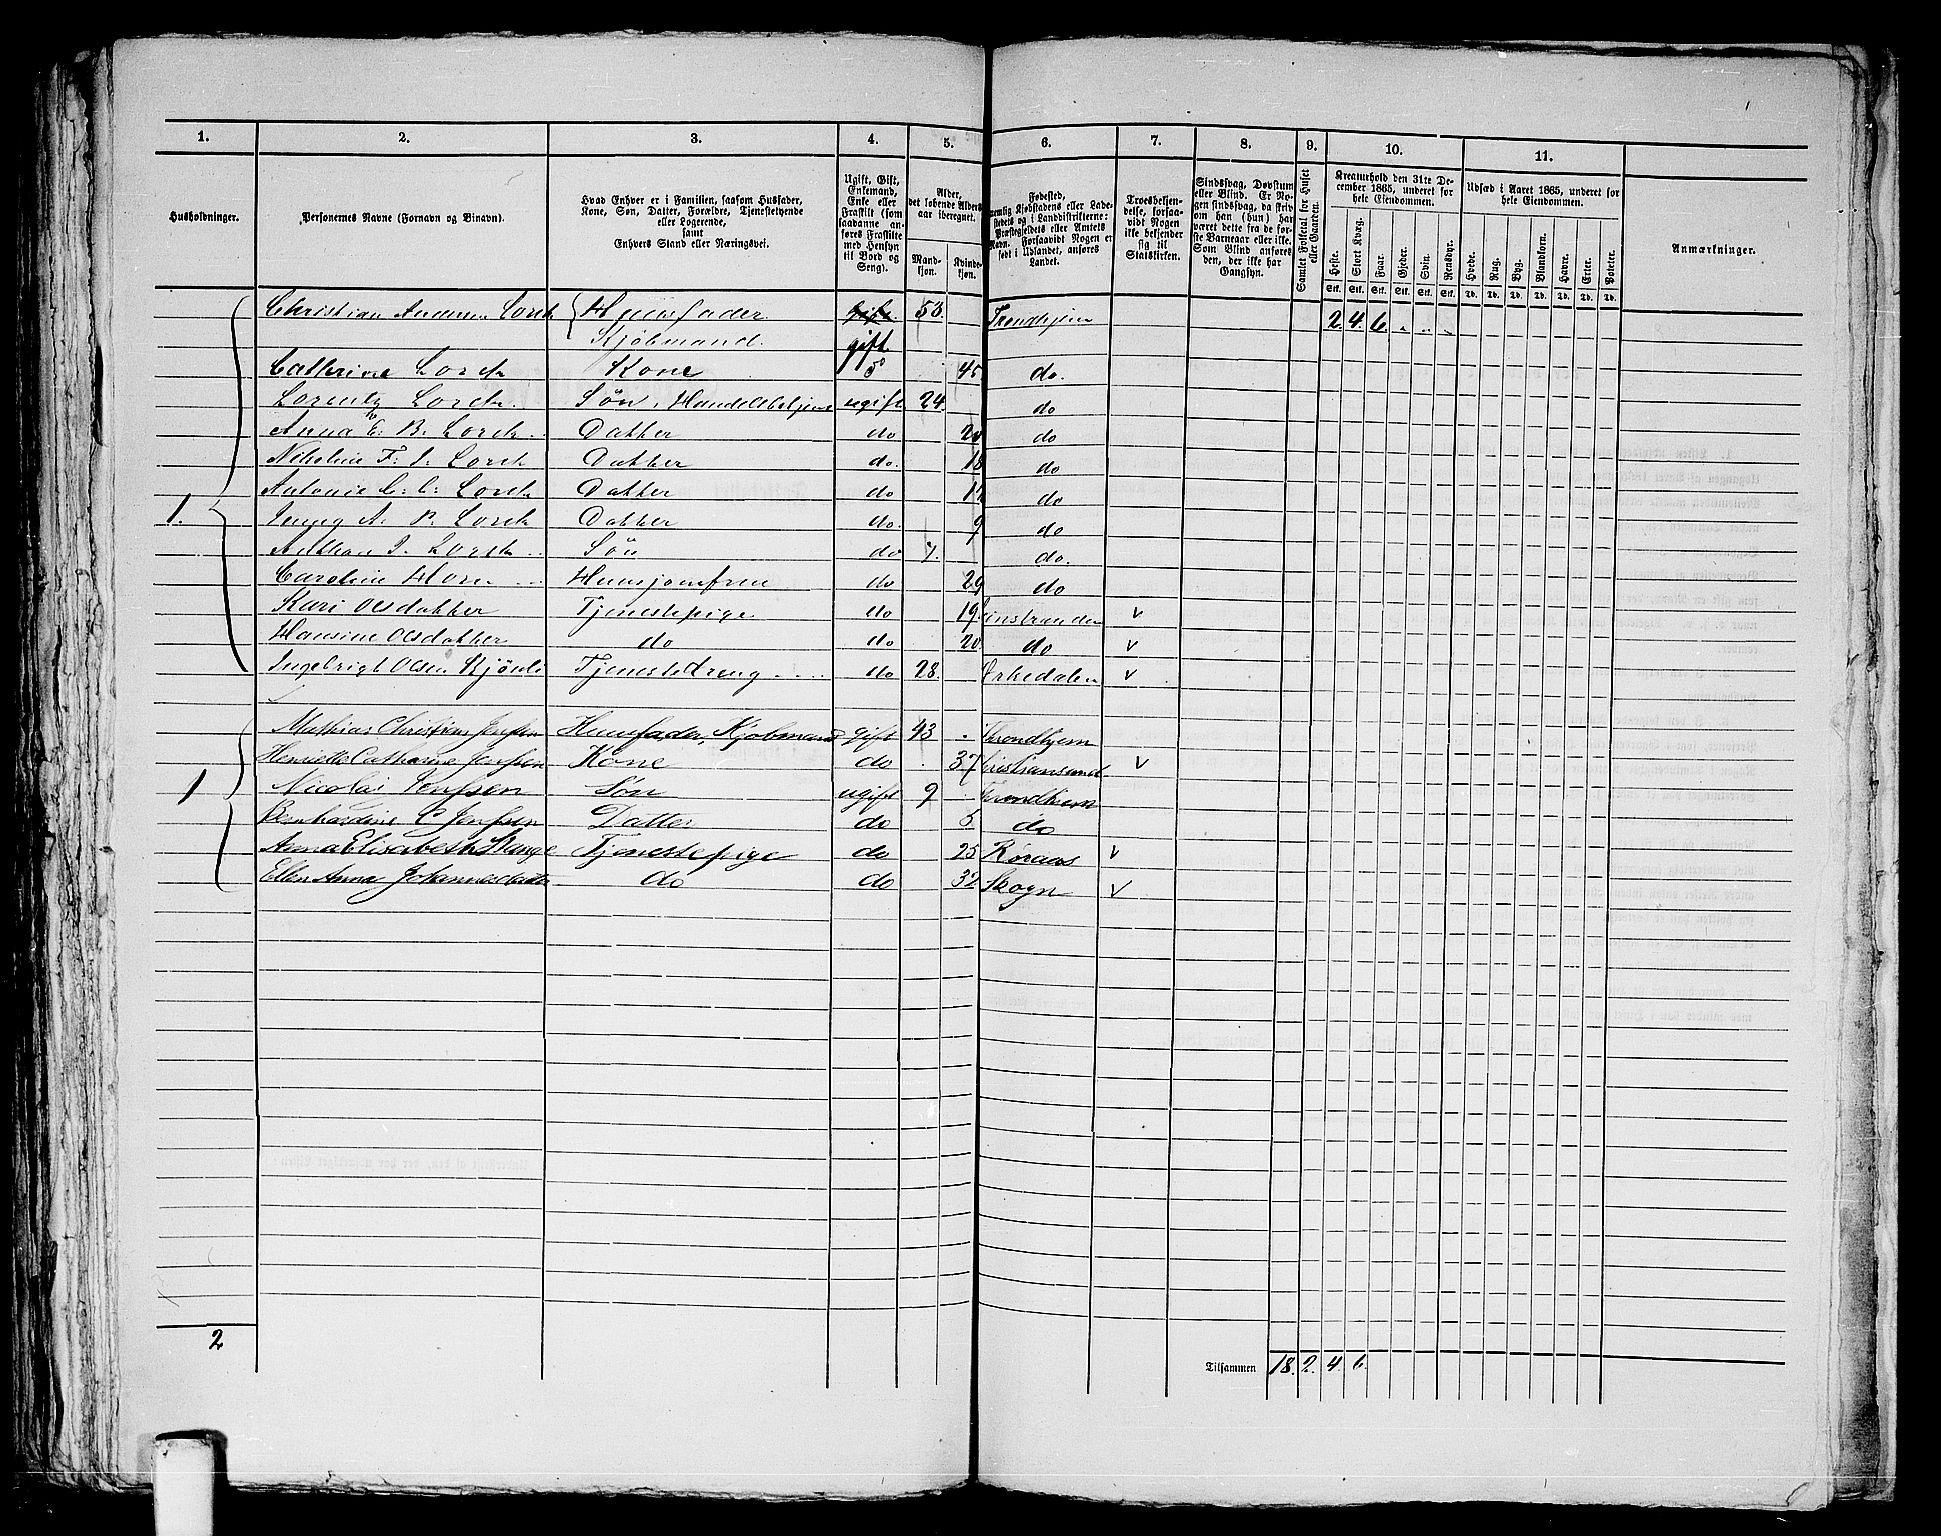 1. 2. 3. 4. 5. 6. 7. 8. 9. 10. 11.
Husholdninger.
Personernes Navne (Fornavn og Binavn).
Hvad Enhver er i Familien, saasom Husfader,
Kone, Søn, Datter, Forældre, Tjenestetyende
eller Logerende,
samt
Enhvers Stand eller Næringsvei.
Ugift, Gift,
Enkemand,
Enke eller
Fraskilt (som
saadanne an-
føres Fraskilte
med Hensyn
til Bord og
Seng).
Alder,
det løbende Alders-
aar iberegnet.
Mand-
kjøn.
Kvinde-
kjøn.
Fødested,
nemlig Kjøbstadens eller Lade-
stedets og i Landdistrikterne:
Præstegjeldets eller Amtets
Navn. Forsaavidt Nogen er
født i Udlandet, anføres
Landet.
Troesbekjen-
delse, forsaa-
vidt Nogen
ikke bekjender
sig til
Statskirken.
Sindssvag, Døvstum
eller Blind. Er No-
gen sindssvag, da skriv
om han (hun) har
været dette fra de før-
ste Barneaar eller ikke.
Som Blind anføres
den, der ikke har
Gangsyn.
Samlet Folketal for Huset
eller Gaarden.
Kreaturhold den 31te De-
cember 1865, underet for
hele Eiendommen.
Heste. Stort Kvæg. Faar. Gjeder. Svin. Rensdyr.
Stk. Stk. Stk. Stk. Stk. Stk.
Udsæd i Aaret 1865, underet for
hele Eiendommen.
Hvede. Rug. Byg. Blandkorn. Havre. Erter. Poteter.
Td. Td. Td. Td. Td. Td. Td.
Anmærkninger.
Christian Lorck Huusfader gift 53. Trondhjem 2. 4. 6.
Kjøbmand. gift
Cathrine Lorck Kone 45 do.
Lorentz Lorck. Søn, ugift 24. do
Anna E. B. Lorck Datter do 20 do
Nikoline F. Lorck Datter do. 18 do
Antonie C. C. Lorck Datter do do
1. Jenny A. Lorck Datter do. 9 do
Lorck Søn do 7. do.
Caroline Horn Huusjomfru do 29 do
Kari Olsdatter Tjenestepige do 19 v
Hansine Olsdatter do do 20 do v
Ingebrigt Olsen Tjenestedreng do 28. Ørkedalen v
Mathias Christian Jenssen Huusfader, Kjøbmand gift 43 Throndhjem
Henriette Cathrine Jenssen Kone do 37 Christiansund v
1 Nicolai Jenssen Søn ugift 9 Throndhjem
Bernhardine C Jenssen Datter do 5 do
Anna Elisabeth Stange Tjenestepige do 25 Røraas v
Ellen Anna Johannesdatter do do 32 Skogn v
2
Tilsammen 18. 2. 4. 6.